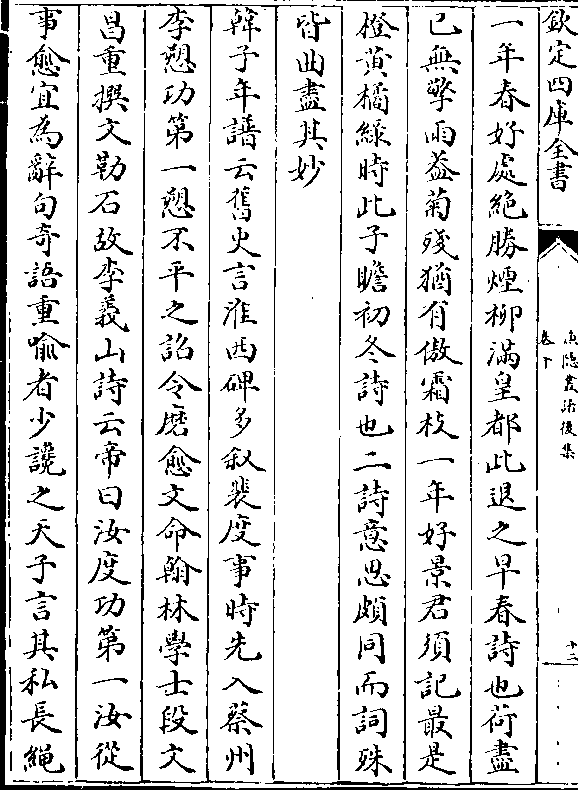 欽定四庫全書
漁隱叢話後集
卷十
十二
一年春好處絶勝煙柳滿皇都此退之早春詩也荷盡
已無擎雨葢菊殘猶有傲霜枝一年好景君須記最是
橙黄橘緑時此子瞻初冬詩也二詩意思頗同而詞殊
皆曲盡其妙
韓子年譜云舊史言淮西碑多叙裴度事時先入蔡州
李愬功第一愬不平之詔令磨愈文命翰林學士段文
昌重撰文勒石故李義山詩云帝曰汝度功第一汝從
事愈宜為辭句奇語重喻者少讒之天子言其私長繩